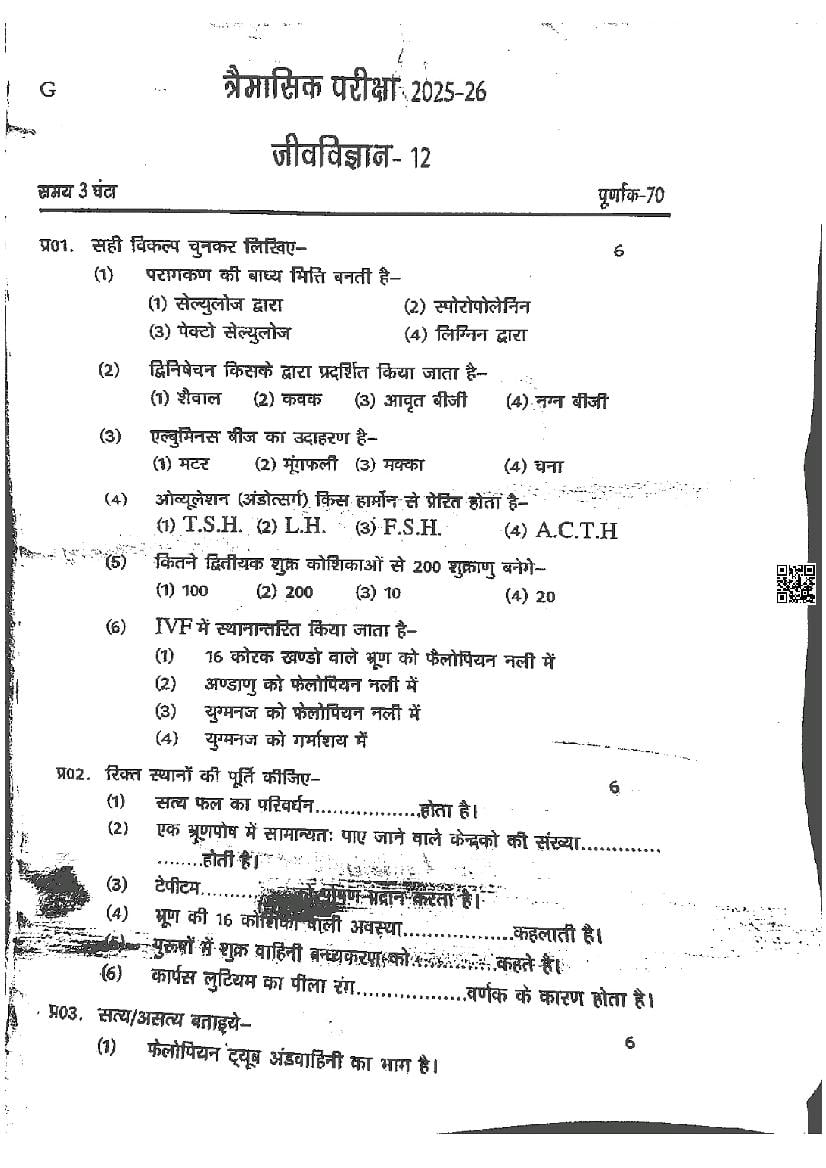 G
त्रैमासिक परीक्षा 2025-26
जीवविज्ञान- 12
समय 3 घंटा पूर्णाक-70
प्र01. सही विकल्प चुनकर लिखिए– 6
(1) परागकण की बाध्य भित्ति बनती है–
(1) सेल्युलोज द्वारा (2) स्पोरोपोलेनिन
(3) पेक्टो सेल्युलोज (4) लिग्निन द्वारा
(2) द्विनिषेचन किसके द्वारा प्रदर्शित किया जाता है–
(1) शैवाल (2) कवक (3) आवृत बीजी (4) नग्न बीजी
(3) एल्बुमिनस बीज का उदाहरण है–
(1) मटर (2) मूंगफली (3) मक्का (4) चना
(4) ओव्यूलेशन (अंडोत्सर्ग) किस हार्मोन से प्रेरित होता है–
(1) T.S.H. (2) L.H. (3) F.S.H. (4) A.C.T.H
(5) कितने द्वितीयक शुक्र कोशिकाओं से 200 शुक्राणु बनेगे–
(1) 100 (2) 200 (3) 10 (4) 20
(6) IVF में स्थानान्तरित किया जाता है–
(1) 16 कोरक खण्डो वाले भ्रूण को फैलोपियन नली में
(2) अण्डाणु को फेलोपियन नली में
(3) युग्मनज को फेलोपियन नली में
(4) युग्मनज को गर्भाशय में
प्र02. रिक्त स्थानों की पूर्ति कीजिए– 6
(1) सत्य फल का परिवर्धन..................होता है।
(2) एक भ्रूणपोष में सामान्यतः पाए जाने वाले केन्द्रको की संख्या..............
........होती है।
(3) टेपीटम............ को पोषण प्रदान करता है।
(4) भ्रूण की 16 कोशिका वाली अवस्था...................कहलाती है।
(5) पुरूषों में शुक्र वाहिनी बन्ध्यकरण को ..............कहते है।
(6) कार्पस लुटियम का पीला रंग...................वर्णक के कारण होता है।
प्र03. सत्य/असत्य बताइये– 6
(1) फेलोपियन ट्यूब अंडवाहिनी का भाग है।